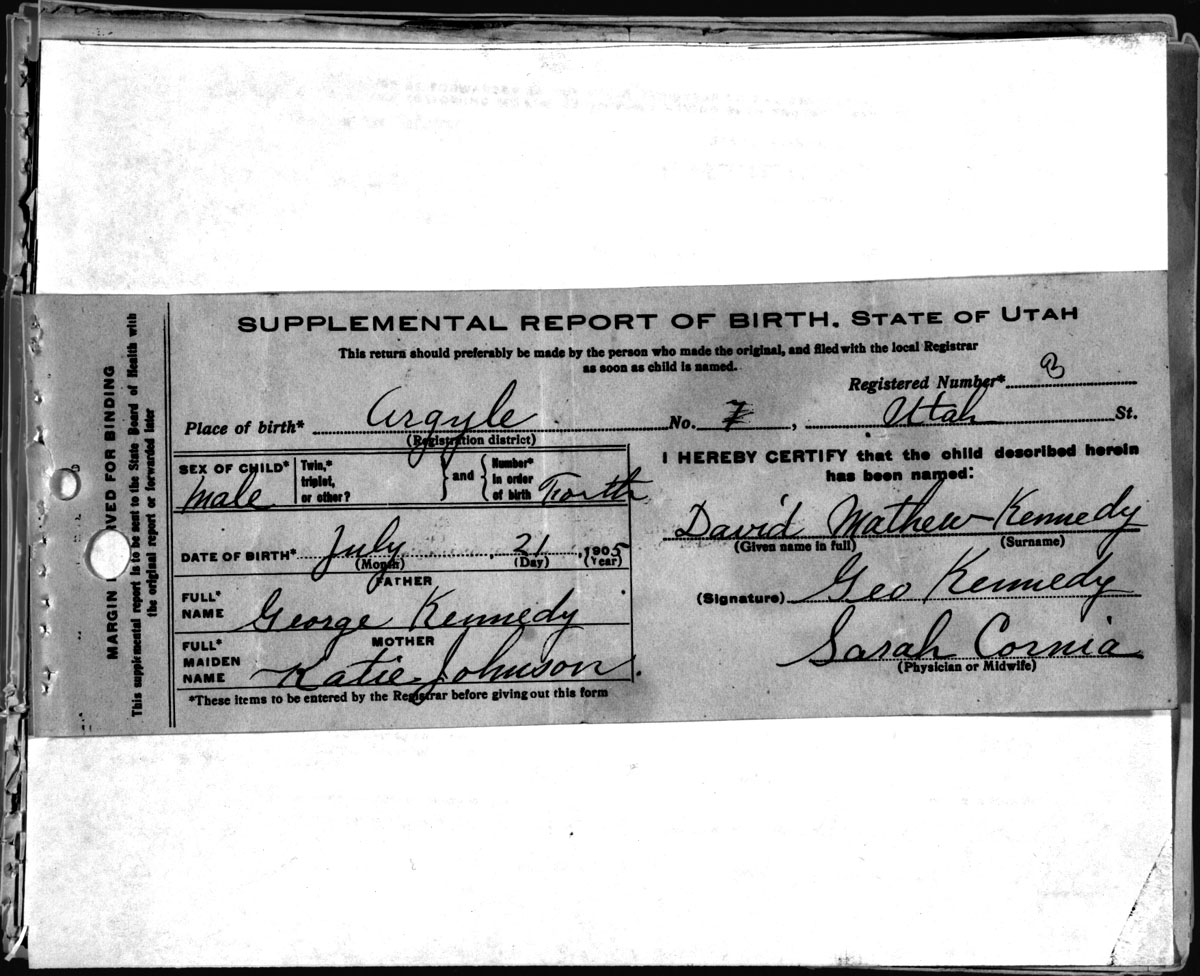 SUPPLEMENTAL REPORT OF BIRTH. STATE OF UTAH
This return should preferably be made by the person who made the original, and filed with the local Registrar
as soon as child is named.
Registered Number*
Place of birth* Argyle No. 7, Utah St.
(Registration district)
SEX OF CHILD* male
Twin,*
triplet,
or other?
and
Number*
in order
of birth
DATE OF BIRTH* July, 21, 1905
(Month) (Day) (Year)
FATHER
FULL*
NAME George Kennedy
MOTHER
FULL*
MAIDEN
NAME Katie Johnson.
*These items to be entered by the Registrar before giving out this form
I HEREBY CERTIFY that the child described herein
has been named:
David Mathew Kennedy
(Given name in full) (Surname)
(Signature) Geo Kennedy
Sarah Cornia
(Physician or Midwife)
MARGIN RESERVED FOR BINDING
This supplemental report is to be sent to the State Board of Health with
the original report or forwarded later